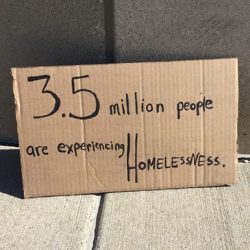 3.5 million people
are experiencing HOMELESSNESS.